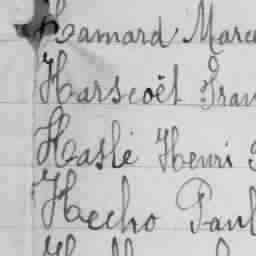 Hamard Marc
Harscoët Fran
Haslé Henri
Hecho Paul